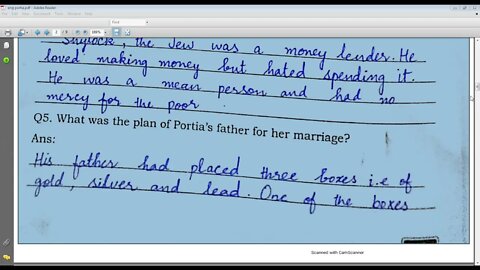 eng portia.pdf - Adobe Reader
Find
Shylock, the Jew was a money lender. He
loved making money but hated spending it.
He was a mean person and had no
mercy for the poor.
Q5. What was the plan of Portia's father for her marriage?
Ans:
His father had placed three boxes i.e of
gold, silver and lead. One of the boxes
Scanned with CamScanner